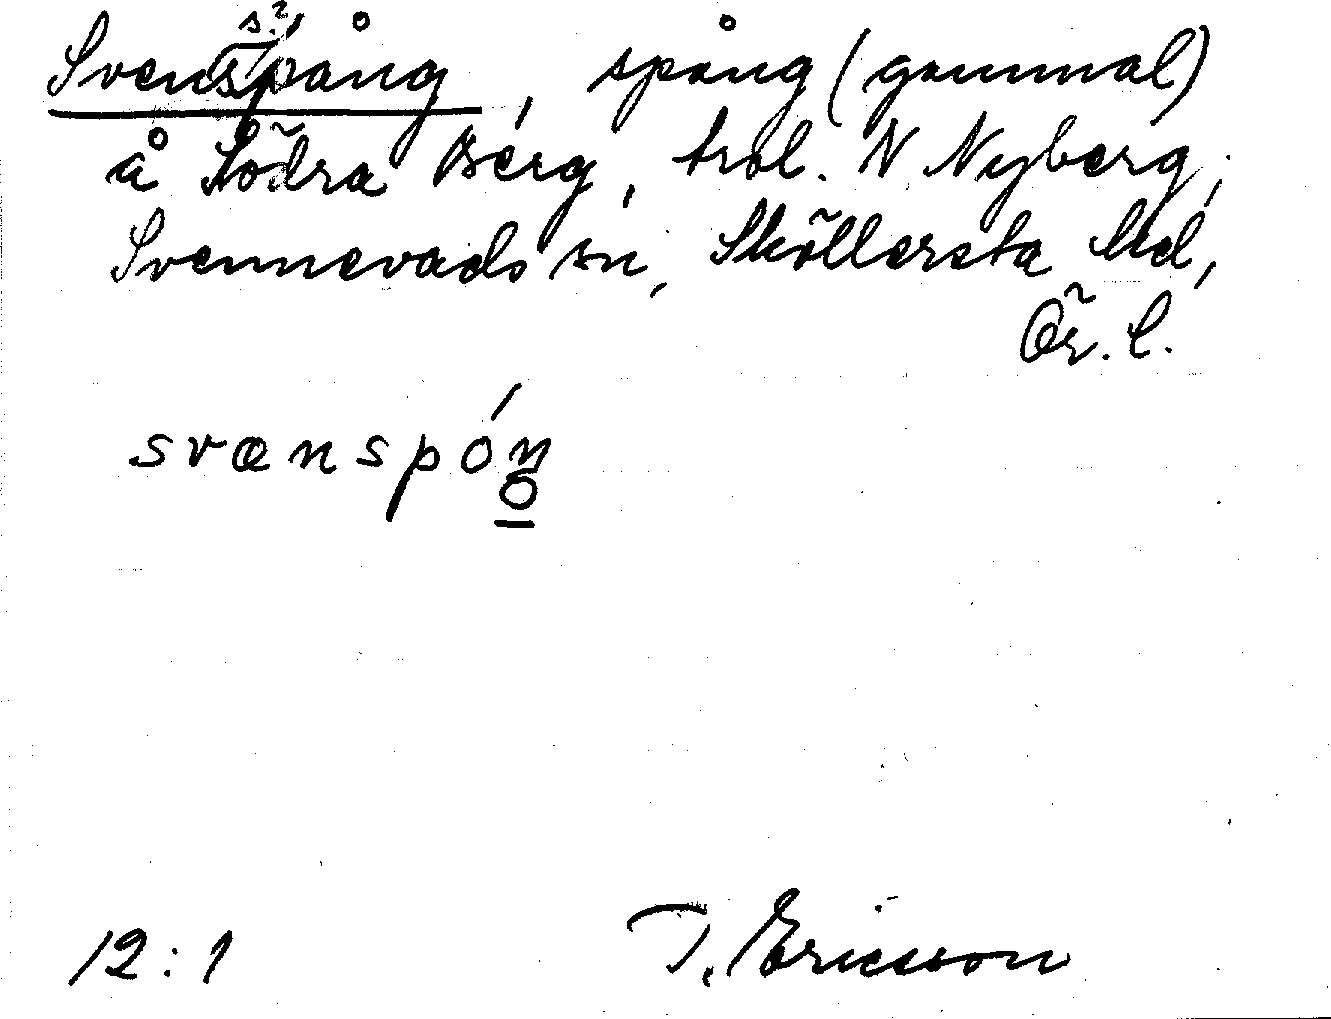 s.?
Svenspång, spång (gammal)
å Södra Berg, trol. N Nyberg;
Svennevads sn, Sköllersta hd,
Ör. l.
svænspóŋ
12:1 T. Ericsson